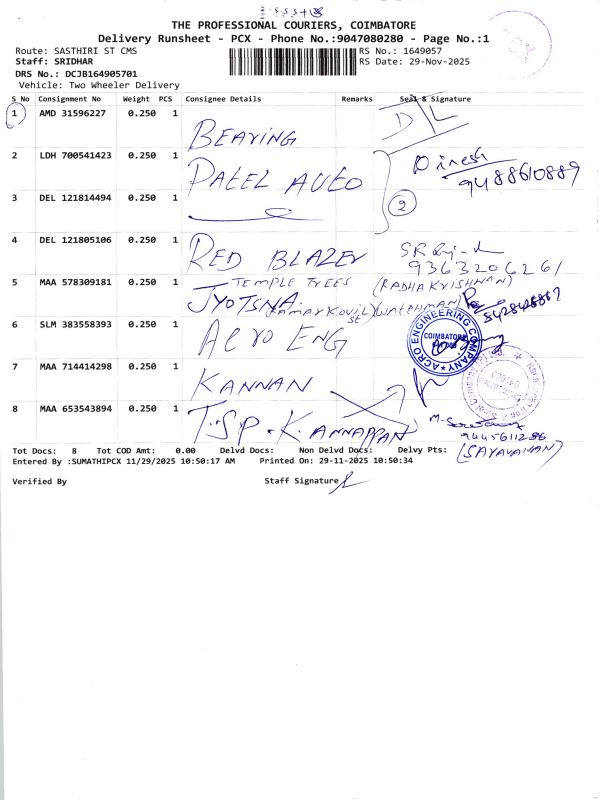 THE PROFESSIONAL COURIERS, COIMBATORE
Delivery Runsheet - PCX - Phone No.:9047080280 - Page No.:1
Route: SASTHIRI ST CMS
RS No.: 1649057
Staff: SRIDHAR
RS Date: 29-Nov-2025
DRS No.: DCJB164905701
Vehicle: Two Wheeler Delivery
S No Consignment No Weight PCS Consignee Details Remarks Seal & Signature
1 AMD 31596227 0.250 1 BEARING D/L
2 LDH 700541423 0.250 1 PATEL AUTO Dinesh
9488610889
3 DEL 121814494 0.250 1 2
4 DEL 121805106 0.250 1 RED BLAZER
9363206261
5 MAA 578309181 0.250 1 TEMPLE TREES (RADHAKRISHNAN)
JYOTSNA (WATCHMAN)
6 SLM 383558393 0.250 1 ACRO ENG
ACRO ENGINEERING COMPANY
COIMBATORE
7 MAA 714414298 0.250 1 KANNAN
8 MAA 653543894 0.250 1 T.S.P. KANNAPPAN
9445611286
(SARAVANAN)
Tot Docs: 8 Tot COD Amt: 0.00 Delvd Docs: Non Delvd Docs: Delvy Pts:
Entered By :SUMATHIPCX 11/29/2025 10:50:17 AM Printed On: 29-11-2025 10:50:34
Verified By Staff Signature